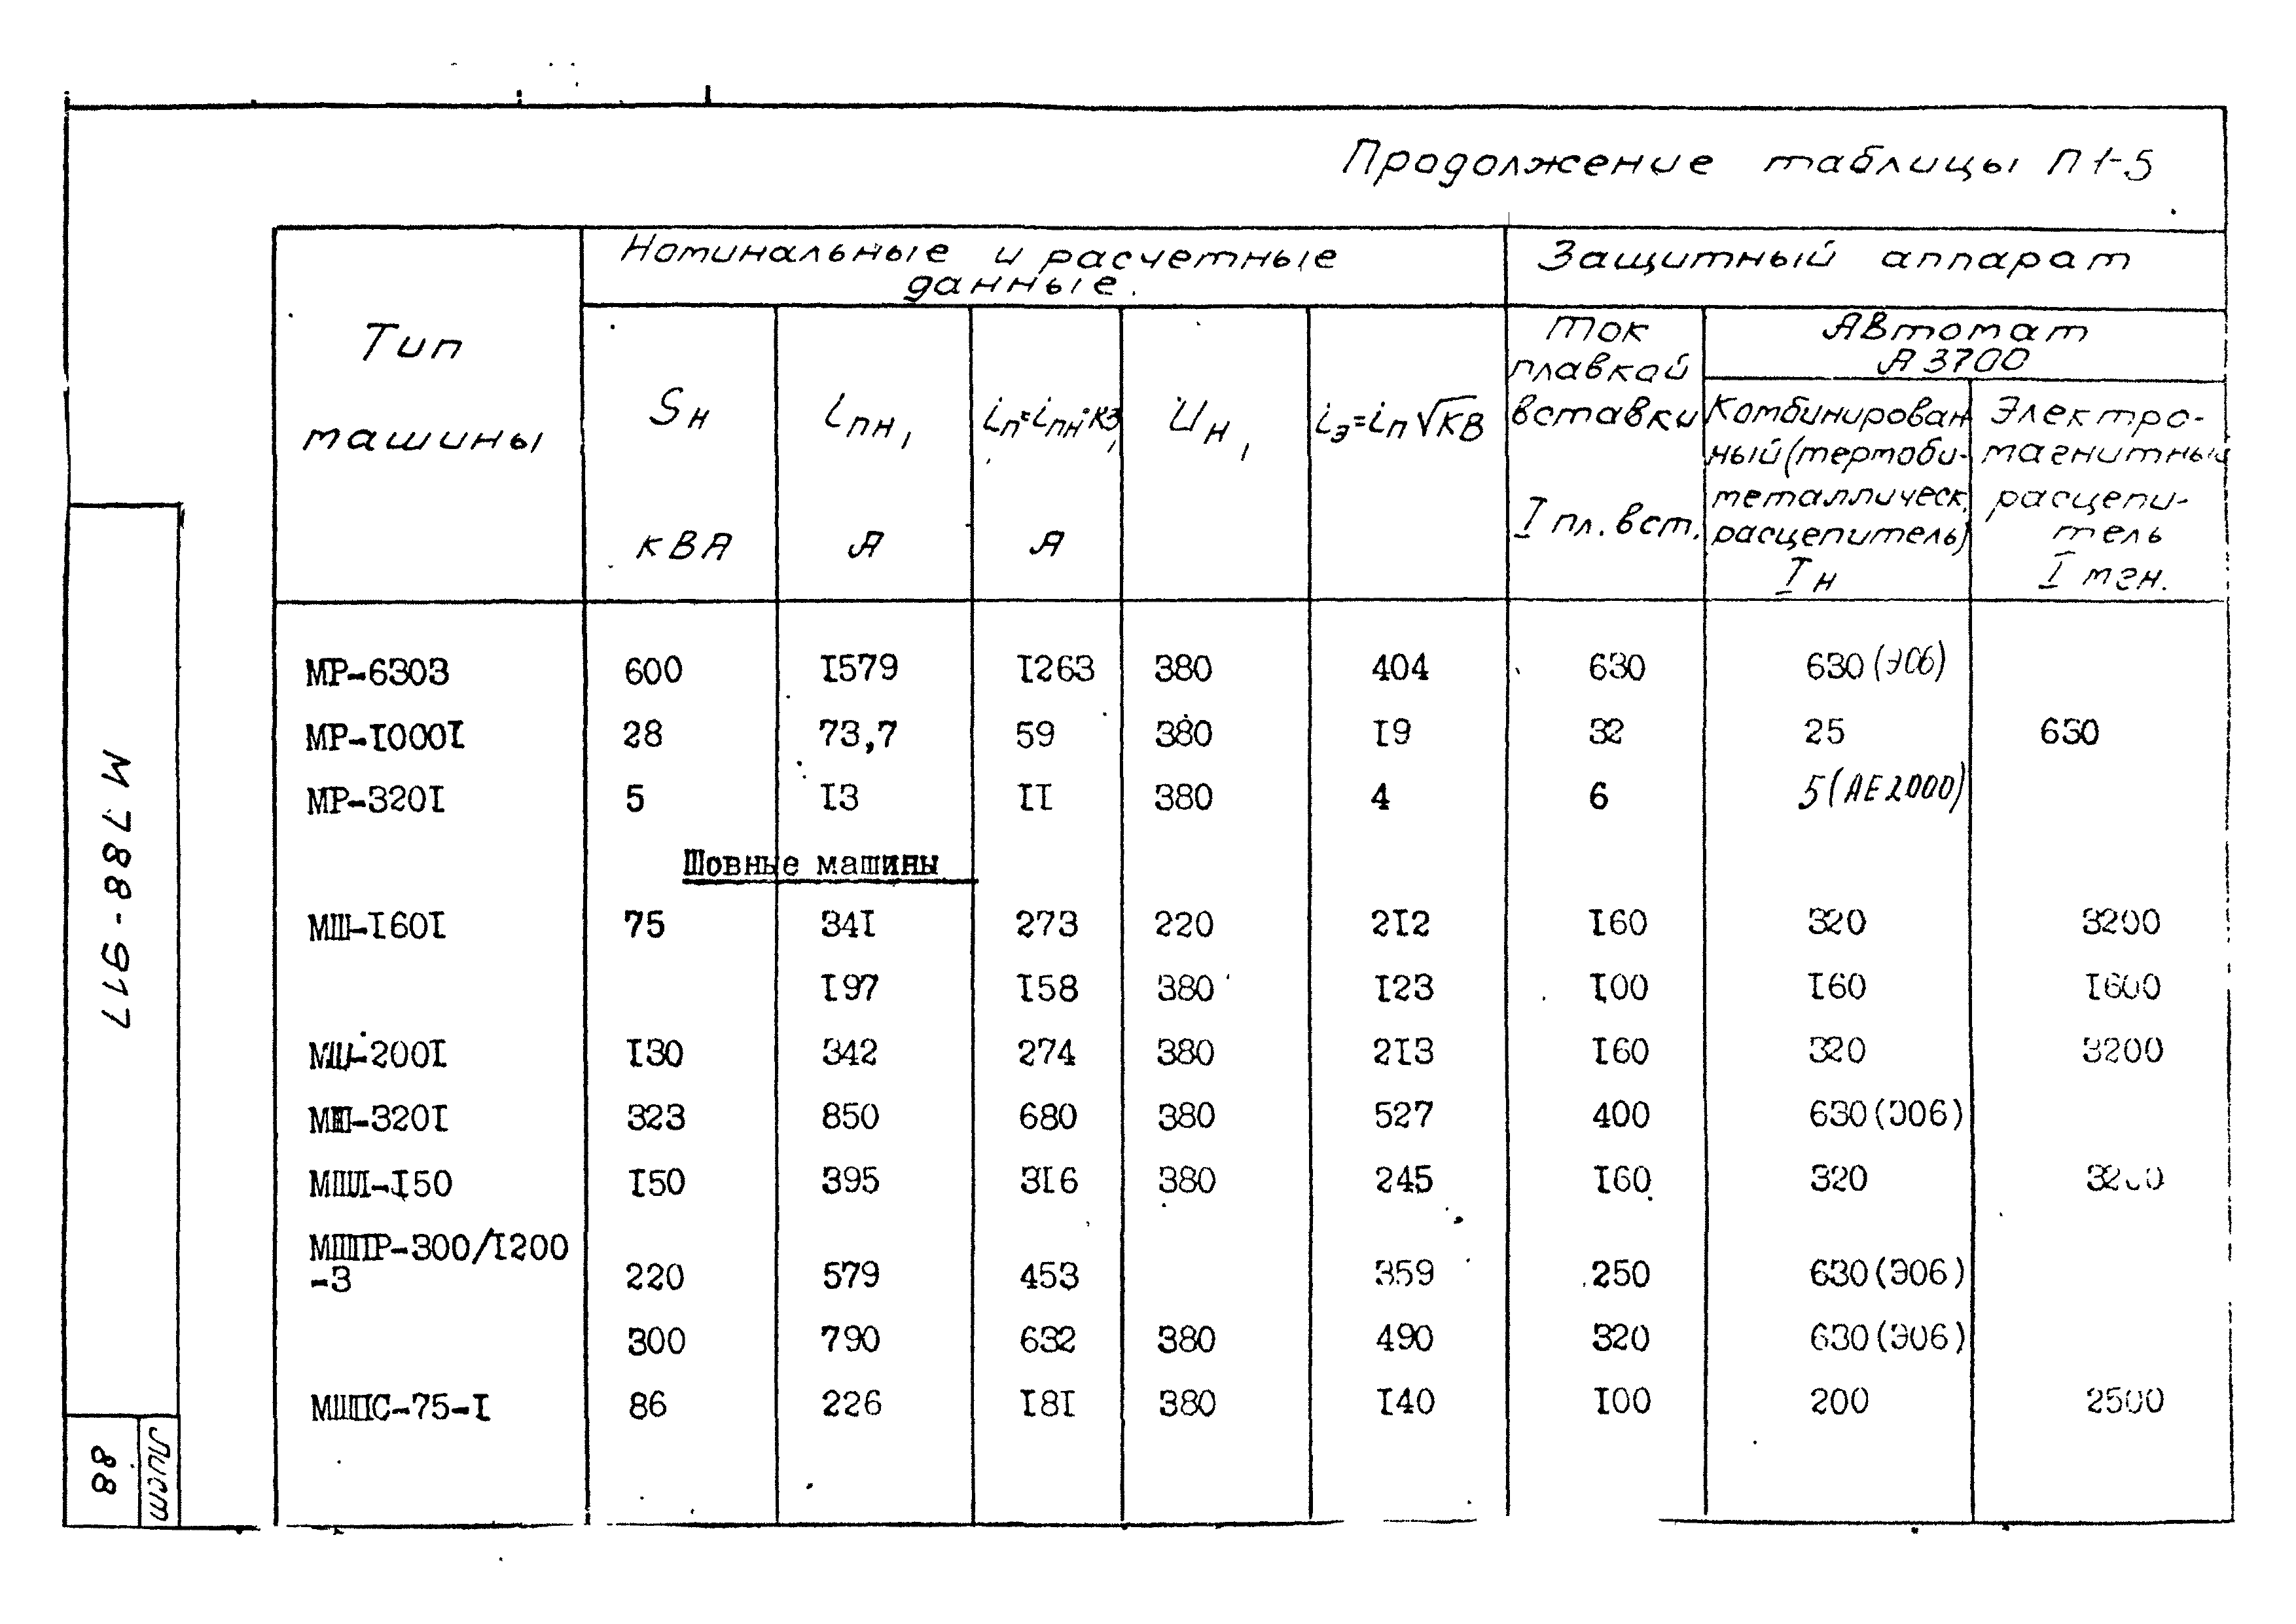 Продолжение таблицы П1-5
Тип машины
Номинальные и расчетные данные.
Защитный аппарат
Sн кВА
iпн, А
iп=iпн·Кз, А
Uн,
iэ=iп√КВ
ток плавкой вставки I пл. вст.
Автомат А3700
Комбинирован ный (термоби- металлическ. расцепитель) Iн
Электро- магнитный расцепи- тель I мгн.
МР-6303 600 I579 I263 380 404 630 630(Э06)
МР-I000I 28 73,7 59 380 I9 32 25 630
МР-320I 5 I3 II 380 4 6 5(АЕ2000)
Шовные машины
МШ-I60I 75 34I 273 220 2I2 I60 320 3200
I97 I58 380 I23 I00 I60 I600
МШ-200I I30 342 274 380 2I3 I60 320 3200
МШ-320I 323 850 680 380 527 400 630(Э06)
МШЛ-I50 I50 395 3I6 380 245 I60 320 3200
МШПР-300/I200
-3 220 579 453 359 250 630(Э06)
300 790 632 380 490 320 630(Э06)
МШПС-75-I 86 226 I8I 380 I40 I00 200 2500
М788-917
Лист
88